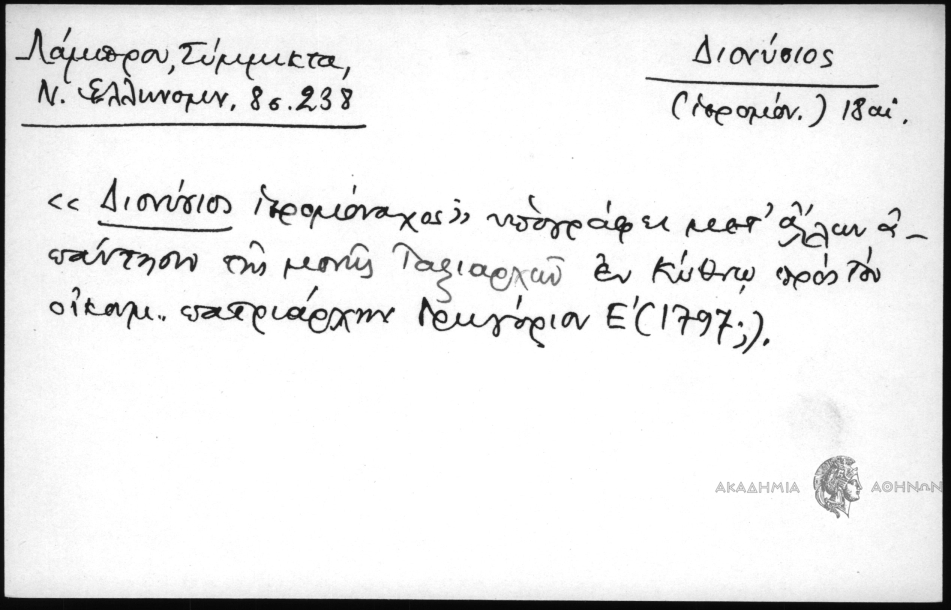 Λάμπρου, Σύμμικτα,
Ν. Ἑλληνομν. 8 σ. 238
Διονύσιος
(ἱερομόν.) 18 αἰ.
«Διονύσιος ἱερομόναχος» ὑπογράφει μετ' ἄλλων ἀ-
πάντησιν τῆς μονῆς Ταξιαρχῶν ἐν Κύθνῳ πρὸς τὸν
οἰκουμ. πατριάρχην Γρηγόριον Ε' (1797;).
ΑΚΑΔΗΜΙΑ ΑΘΗΝΩΝ